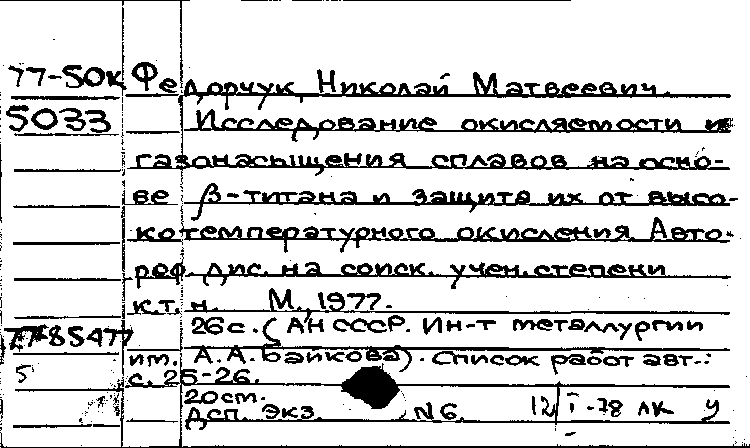 77-50к Федорчук, Николай Матвеевич.
5033 Исследование окисляемости и
газонасыщения сплавов на осно-
ве β-титана и защита их от высо-
котемпературного окисления Авто-
реф. дис. на соиск. учен. степени
к.т.н. М., 1977.
26с. (АН СССР. Ин-т металлургии
7785477
им. А.А. Байкова). Список работ авт.:
5 с. 25-26.
20см.
Дсп. Экз. N6. 12/I-78 ЛК У